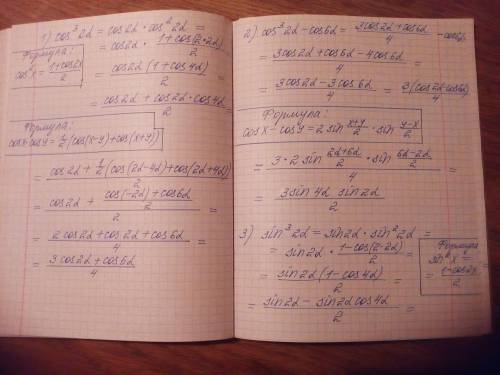 1) cos³2α = cos2α · cos²2α =
Формула:
cos²x = (1+cos2x)/2
= cos2α · (1+cos(2·2α))/2 =
= (cos2α (1+cos4α))/2 =
= (cos2α + cos2α · cos4α)/2
Формула:
cosx·cosy = 1/2 (cos(x-y)+cos(x+y))
= (cos2α + 1/2 (cos(2α-4α)+cos(2α+4α)))/2
= (cos2α + (cos(-2α)+cos6α)/2)/2 =
= (2cos2α+cos2α+cos6α)/4 =
= (3cos2α+cos6α)/4
2) cos³2α - cos6α = (3cos2α+cos6α)/4 - cos6α
= (3cos2α+cos6α-4cos6α)/4 =
= (3cos2α-3cos6α)/4 = 3(cos2α-cos6α)/4
Формула:
cosx-cosy = 2sin (x+y)/2 · sin (y-x)/2
= (3·2sin (2α+6α)/2 · sin (6α-2α)/2)/4 =
= (3sin4α sin2α)/2
3) sin³2α = sin2α · sin²2α =
Формула
sin²x =
= (1-cos2x)/2
= sin2α · (1-cos(2·2α))/2 =
= (sin2α (1-cos4α))/2 =
= (sin2α - sin2α cos4α)/2 =